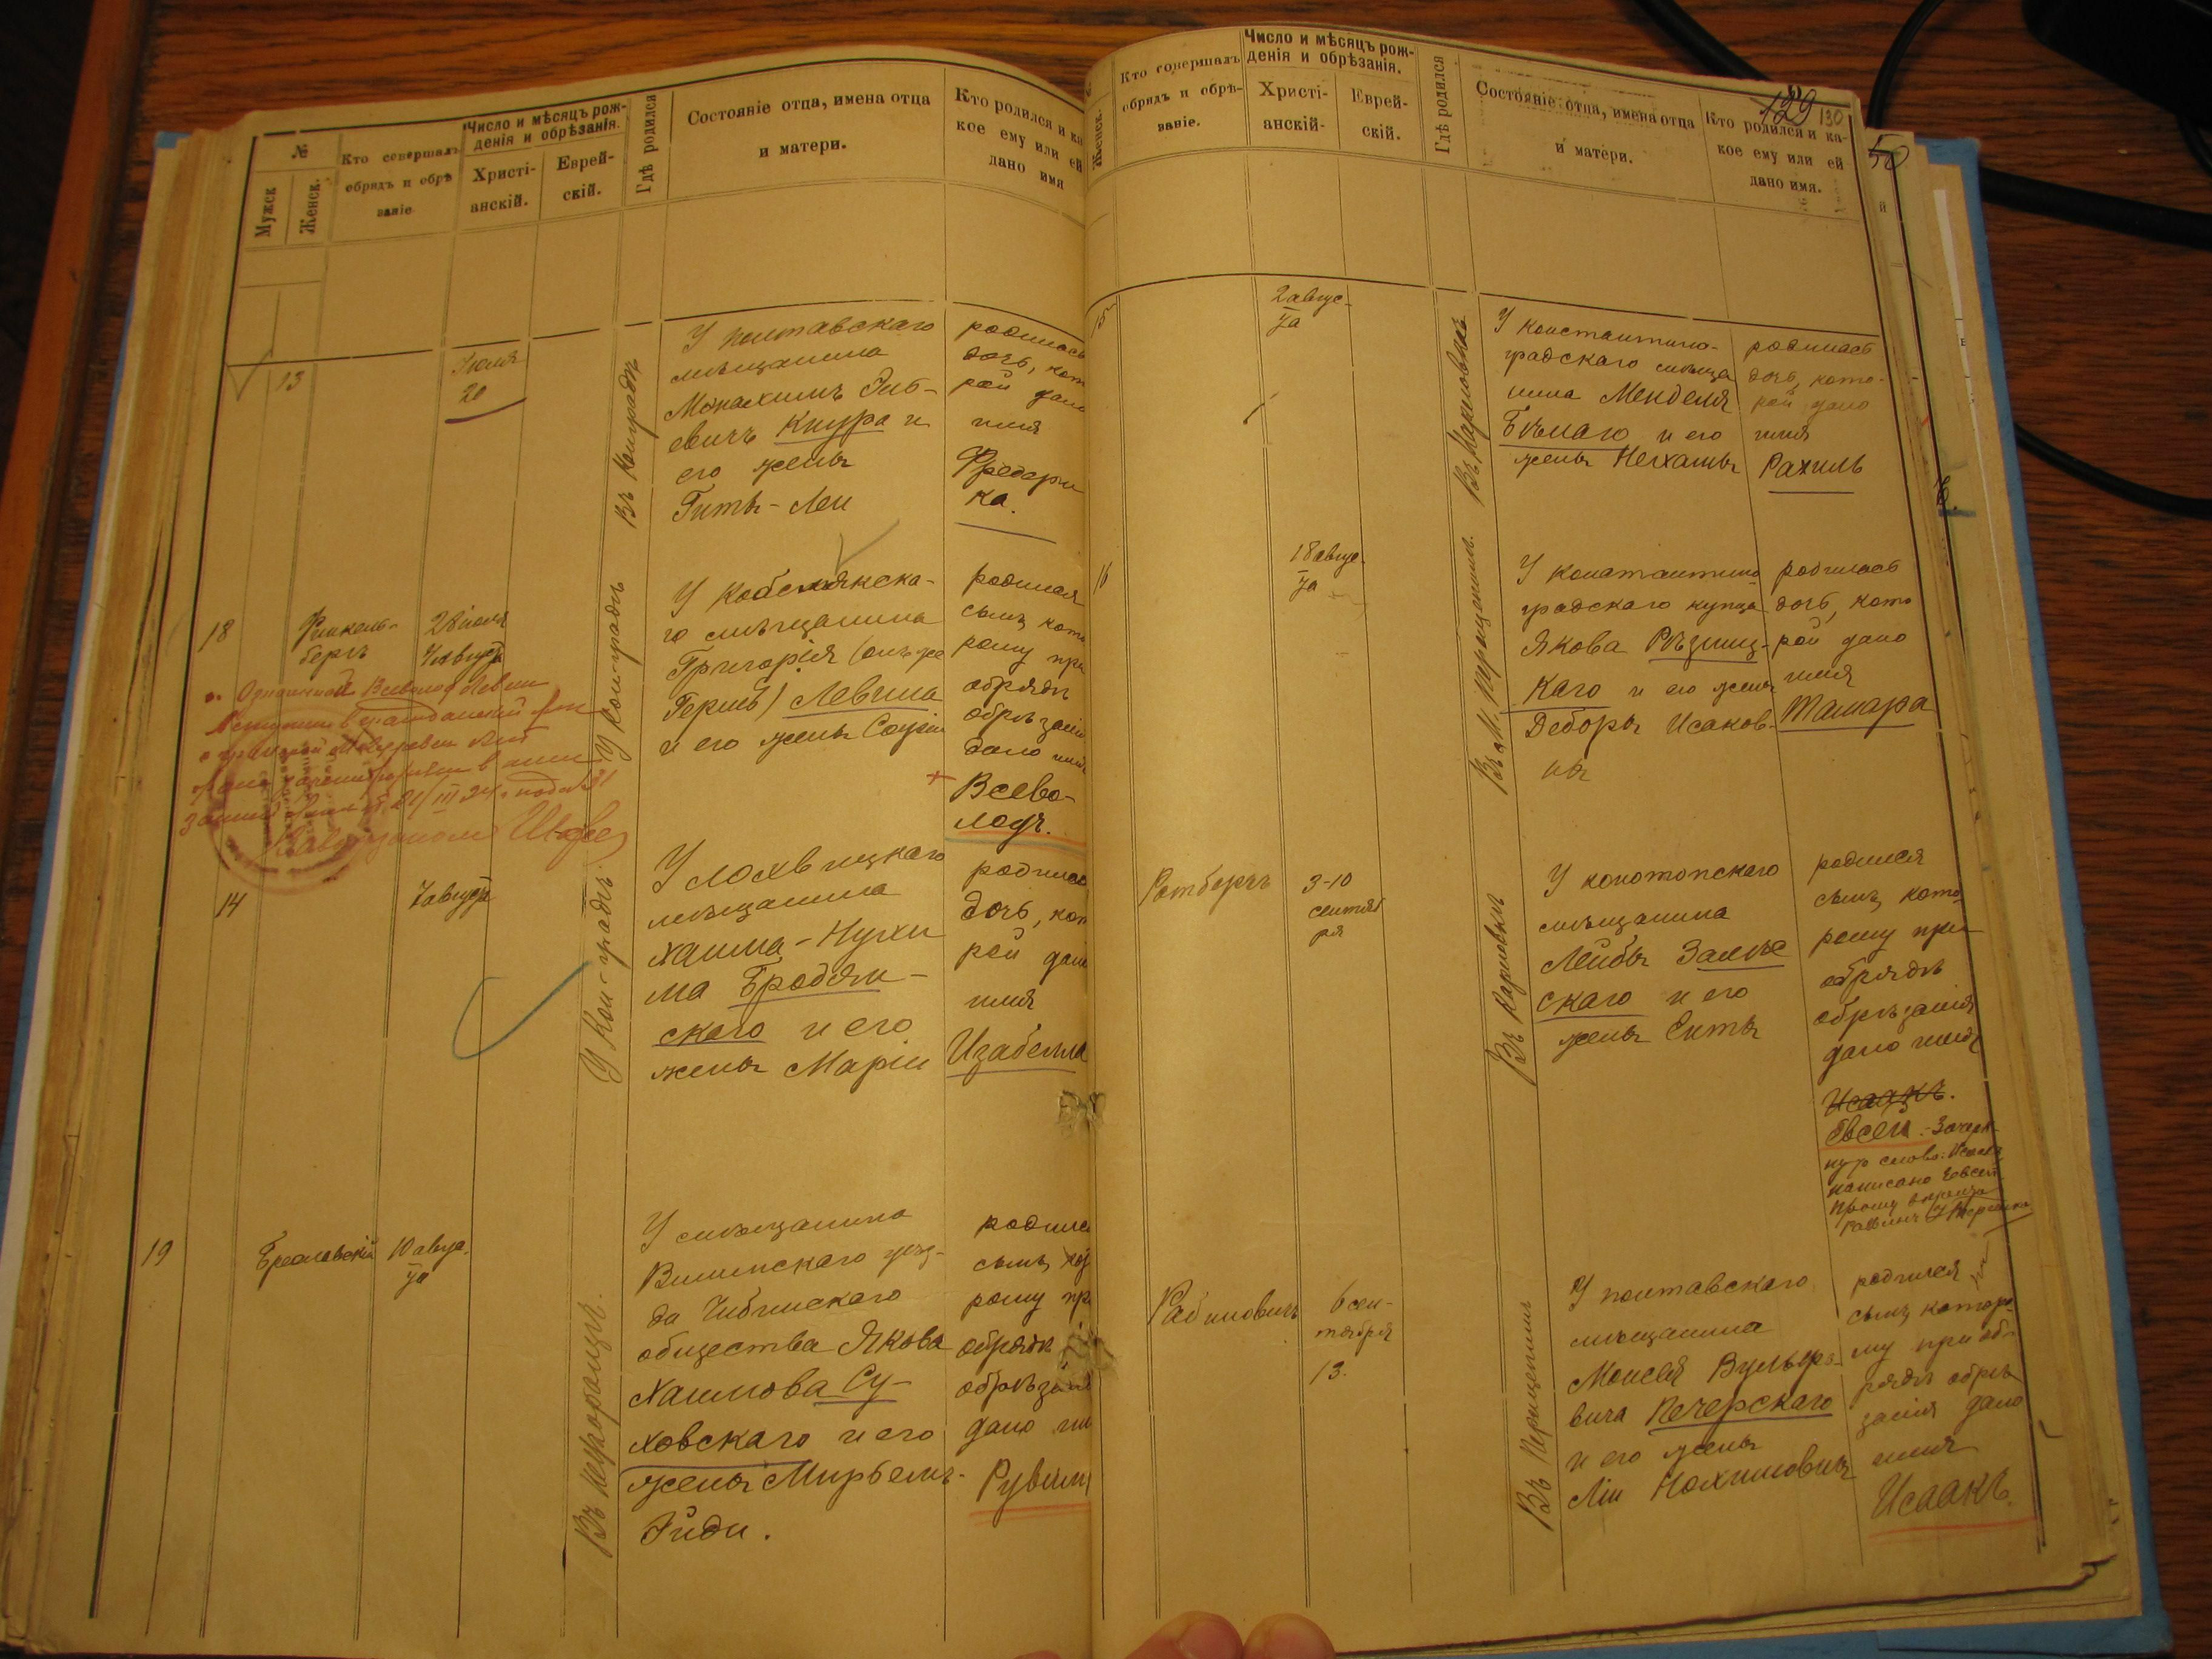 №
Мужск
Женск.
Кто совершалъ
обрядъ и обрѣ
заніе
Число и мѣсяцъ рож-
денія и обрѣзанія.
Христі-
анскій.
Еврей-
скій.
Гдѣ родился
Состояніе отца, имена отца
и матери.
Кто родился и ка
кое ему или ей
дано имя
13
Іюля
20
Въ Конградѣ
У полтавскаго
мѣщанина
евичъ Кнура и
его жены
Гиты-Леи
родилась
дочь, кот
рой дано
имя
Фредери
ка.
18
Финкель-
бергъ
28 іюля
4 Август
У Конградѣ
У Кобелякска-
го мѣщанина
Григорія (онъ же
Герша) Левина
и его жены Софіи
родился
сынъ, кото
рому при
обрядѣ
обрѣзані
дано имя
Всево-
лодъ.
14
7 август
У Кон-градѣ
У лохвицкаго
мѣщанина
Хаима-Нухи
ма Бродян-
скаго и его
жены Маріи
родилас
дочь, кот
рой дано
имя
Изабелла
19
Бреславскій
10 авгус.
та
У мѣщанина
Виленскаго уѣз-
да
общества Якова
Хаимова Су-
ховскаго и его
жены
родилс
сынъ, кот
рому пр
обрядѣ
обрѣзані
дано им
Рувим
Женск.
Кто совершалъ
обрядъ и обрѣ-
заніе.
Число и мѣсяцъ рож-
денія и обрѣзанія.
Христі-
анскій-
Еврей-
скій.
Гдѣ родился
Состояніе отца, имена отца
и матери.
Кто родился и ка-
кое ему или ей
дано имя.
129
130
50
15
2 авгус-
та
Въ Карловкѣ
У константино-
градскаго мѣща
нина Менделя
Бѣлаго и его
жены Нехамы
родилась
дочь, кото-
рой дано
имя
Рахиль
16
18 авгус.
та
Въ м. Перещепинѣ.
У константино
градскаго купца
Якова Рѣзниц-
каго и его жены
Деборы Исаков-
ны
родилась
дочь, кото
рой дано
имя
Тамара
Ротбергъ
3-10
сентяб
ря
Въ Карловкѣ
У конотопскаго
мѣщанина
Лейбы Залѣс
скаго и его
жены Енты
родился
сынъ, кото
рому при
обрядѣ
обрѣзанія
дано имя
Исаакъ.
Евсей.-Зачерк-
нут слово: Исаакъ
написано Евсей
Рабиновичъ
6 сен-
тября
13.
Въ Перещепинѣ
У полтавскаго
мѣщанина
Моисея Вульфо-
вича Печерскаго
и его жены
Ліи Нохимовны
родился
сынъ, которо
му при об-
рядѣ обрѣ
занія дано
имя
Исаакъ.